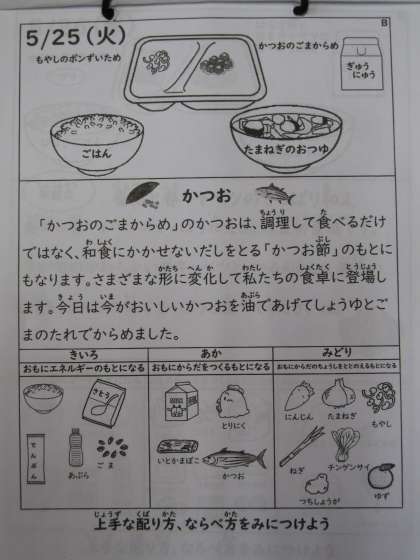 B
5/25（火）
もやしのポンずいため
かつおのごまからめ
ぎゅう
にゅう
ごはん
たまねぎのおつゆ
かつお
「かつおのごまからめ」のかつおは、調理して食べるだけ
ではなく、和食にかかせないだしをとる「かつお節」のもとに
もなります。さまざまな形に変化して私たちの食卓に登場し
ます。今日は今がおいしいかつおを油であげてしょうゆとご
まのたれでからめました。
きいろ
あか
みどり
おもにエネルギーのもとになる
おもにからだをつくるもとになる
おもにからだのちょうしをととのえるもとになる
さとう
でんぷん
あぶら
ごま
とりにく
いとかまぼこ
かつお
にんじん
たまねぎ
もやし
ねぎ
チンゲンサイ
つちしょうが
ゆず
上手な配り方、ならべ方をみにつけよう